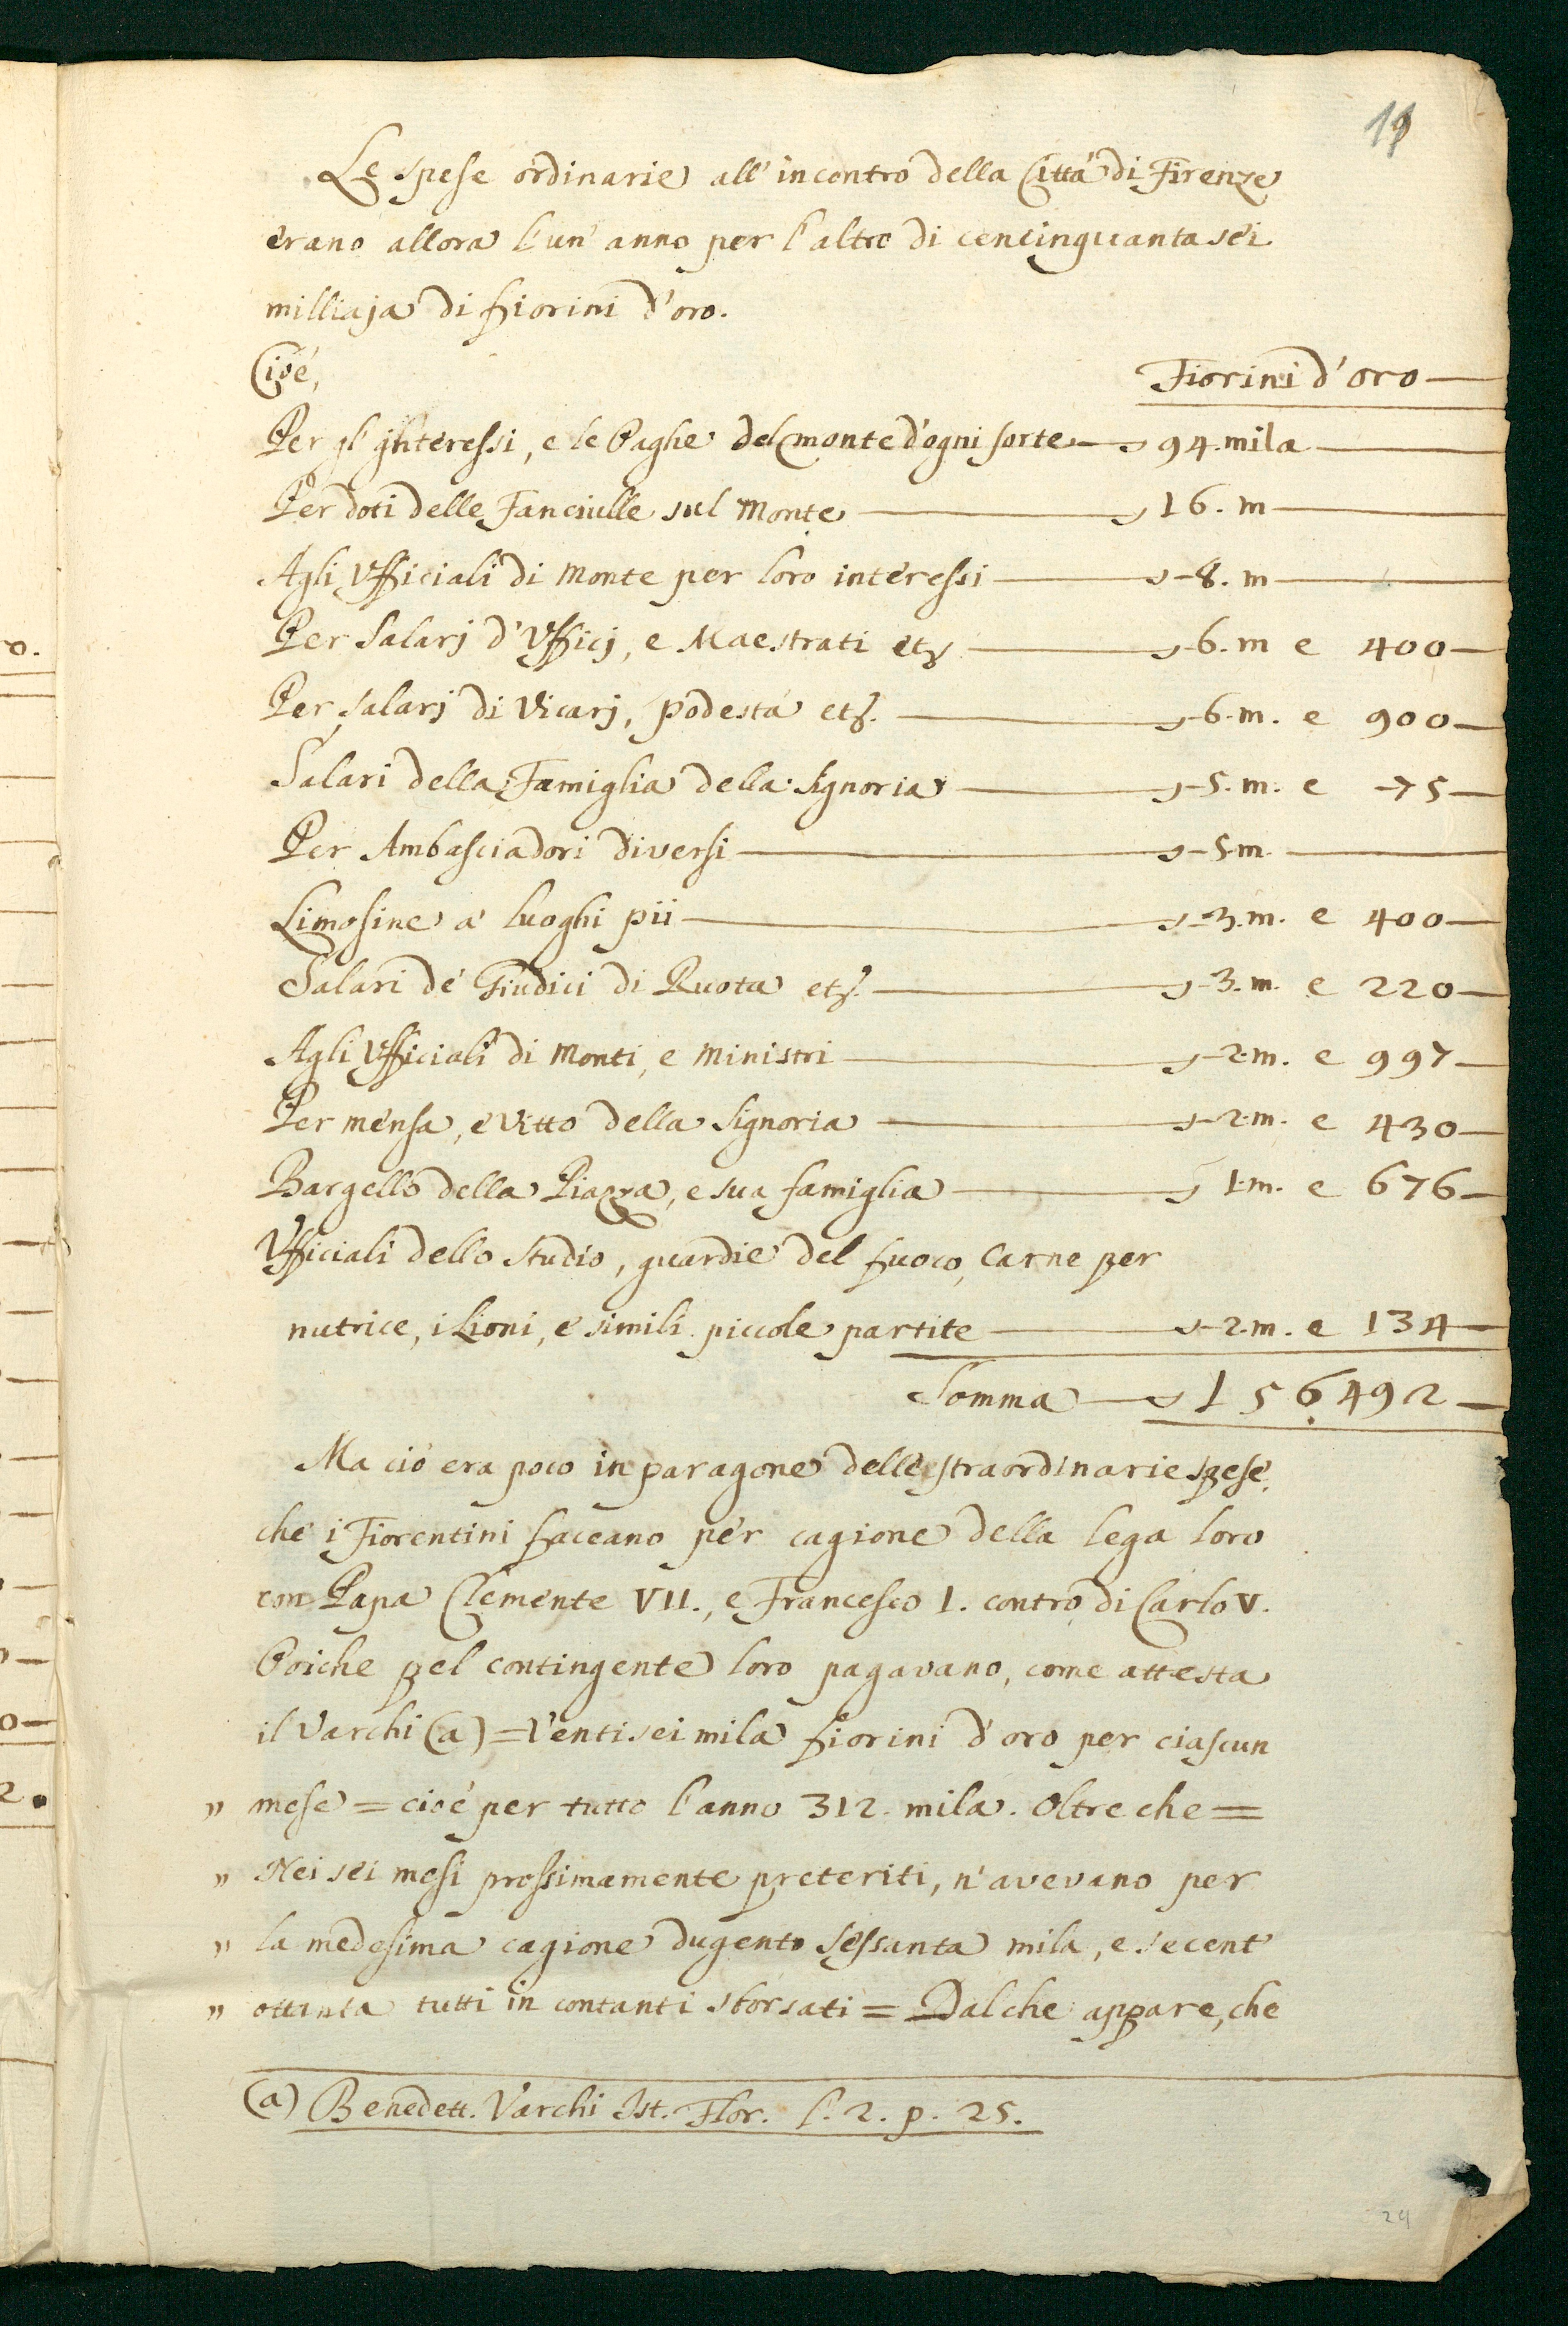 19
Le spese ordinarie all'incontro della Città di Firenze
erano allora l'un' anno per l'altro di cencinquanta sei
milliaja di fiorini d'oro.
Cioè, Fiorini d'oro
Per gl' interessi, e le Paghe del monte d'ogni sorte 94. mila
Per doti delle Fanciulle sul Monte 16. m
Agli Vfficiali di Monte per loro interessi 8. m
Per Salarj d'Vfficj, e Maestrati etz 6. m e 400
Per salarj di Vicarj, Podestà etz. 6. m. e 900
Salari della Famiglia della Signoria 5. m. e 75
Per Ambasciadori diversi 5 m.
Limosine a' luoghi pii 3. m. e 400
Salari de' Giudici di Ruota etz. 3. m. e 220
Agli Vfficiali di Monti, e ministri 2. m. e 997
Per mensa, e vitto della Signoria 2. m. e 430
Bargello della Piazza, e sua famiglia 1. m. e 676
Vfficiali dello Studio, guardie del fuoco, Carne per
nutrice, i Lioni, e simili piccole partite 2. m. e 134
Somma 156492
Ma ciò era poco in paragone delle straordinarie spese,
che i Fiorentini faceano per cagione della lega loro
con Papa Clemente VII., e Francesco I. contro di Carlo V.
Poiche pel contingente loro pagavano, come attesta
il Varchi (a) = Venti sei mila fiorini d'oro per ciascun
" mese = cioè per tutto l'anno 312. mila. Oltre che =
" Nei sei mesi prossimamente preteriti, n'avevano per
" la medesima cagione dugento sessanta mila, e secent'
" ottanta tutti in contanti sborsati = Dal che appare, che
(a) Benedett. Varchi Ist. Flor. l. 2. p. 25.
24